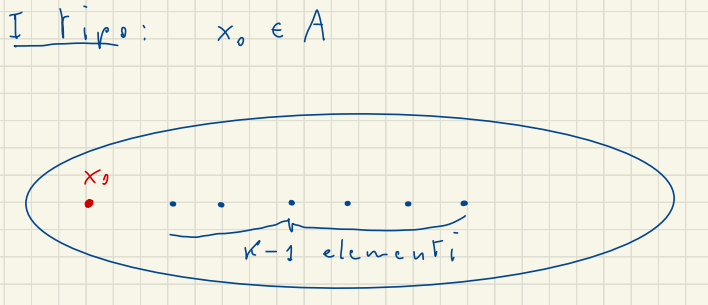 I tipo: x₀ ∈ A
x₀
K-1 elementi